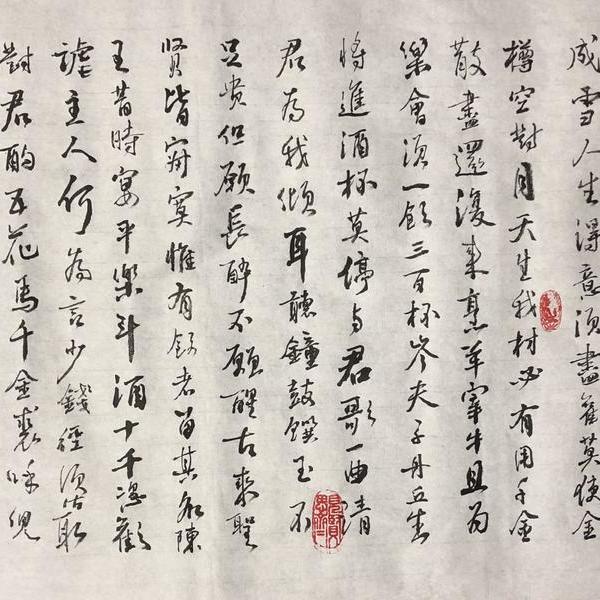 成雪人生得意須盡歡莫使金
樽空對月天生我材必有用千金
散盡還復来烹羊宰牛且為
樂會須一飲三百杯岑夫子丹丘生
將進酒杯莫停与君歌一曲請
君為我傾耳聽鐘鼓饌玉不
足貴但願長醉不願醒古來聖
賢皆寂寞惟有飲者留其名陳
王昔時宴平樂斗酒十千恣歡
謔主人何為言少錢徑須沽取
對君酌五花馬千金裘呼兒